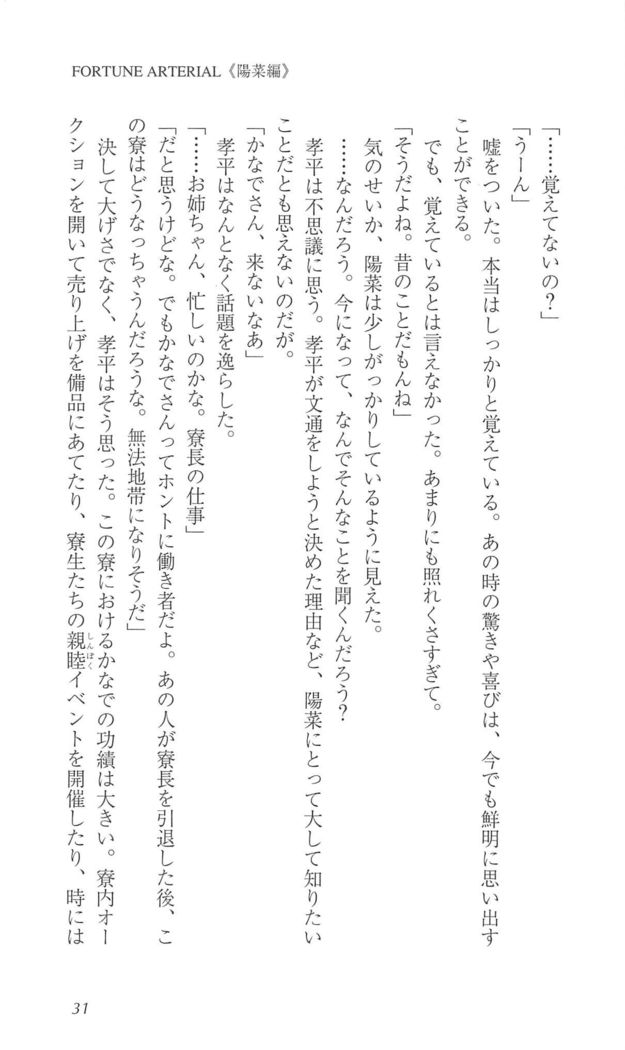 FORTUNE ARTERIAL《陽菜編》
「……覚えてないの？」
「うーん」
嘘をついた。本当はしっかりと覚えている。あの時の驚きや喜びは、今でも鮮明に思い出す
ことができる。
でも、覚えているとは言えなかった。あまりにも照れくさすぎて。
「そうだよね。昔のことだもんね」
気のせいか、陽菜は少しがっかりしているように見えた。
……なんだろう。今になって、なんでそんなことを聞くんだろう？
孝平は不思議に思う。孝平が文通をしようと決めた理由など、陽菜にとって大して知りたい
ことだとも思えないのだが。
「かなでさん、来ないなあ」
孝平はなんとなく話題を逸らした。
「……お姉ちゃん、忙しいのかな。寮長の仕事」
「だと思うけどな。でもかなでさんってホントに働き者だよ。あの人が寮長を引退した後、こ
の寮はどうなっちゃうんだろうな。無法地帯になりそうだ」
決して大げさでなく、孝平はそう思った。この寮におけるかなでの功績は大きい。寮内オー
クションを開いて売り上げを備品にあてたり、寮生たちの親睦イベントを開催したり、時には
しんぼく
31